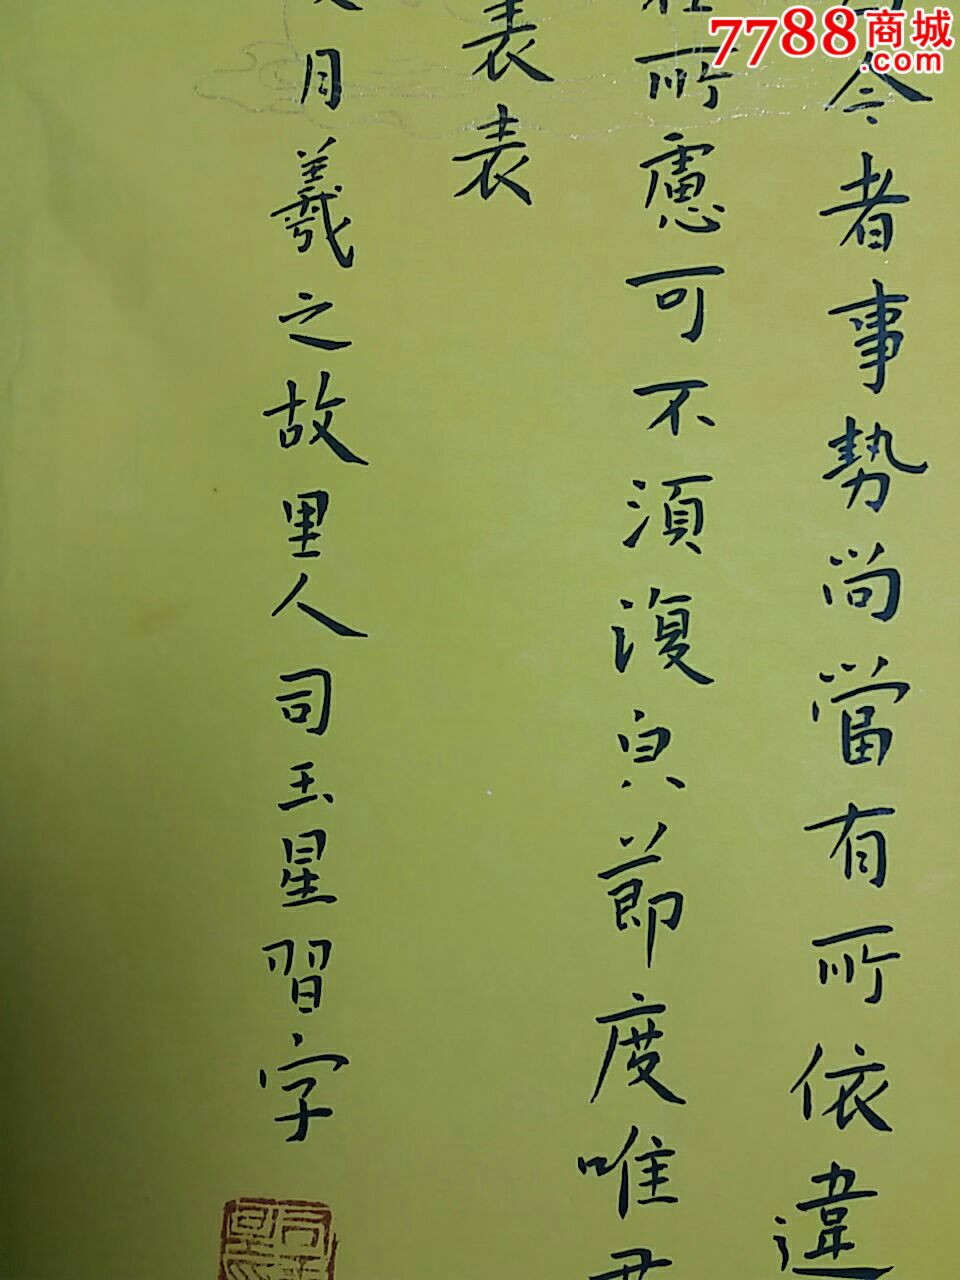 7788商城
.com
令者事勢尚當有所依違
所慮可不須復與節度唯君
表表
月羲之故里人司玉星習字